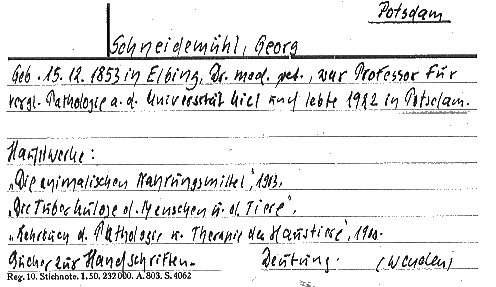 Potsdam
Schneidemühl, Georg
Geb. 15.12.1853 in Elbing, Dr. med. vet., war Professor für
vergl. Pathologie a. d. Universität Kiel und lebte 1922 in Potsdam.
Hauptwerke:
„Die animalischen Nahrungsmittel", 1903.
„Die Tuberkulose d. Menschen u. d. Tiere".
„Lehrbuch d. Pathologie u. Therapie der Haustiere",
Bücher zur Handschriften-Deutung. (wenden)
Reg. 10. Stichnote. 1,50, 232000. A. 803. S. 4062